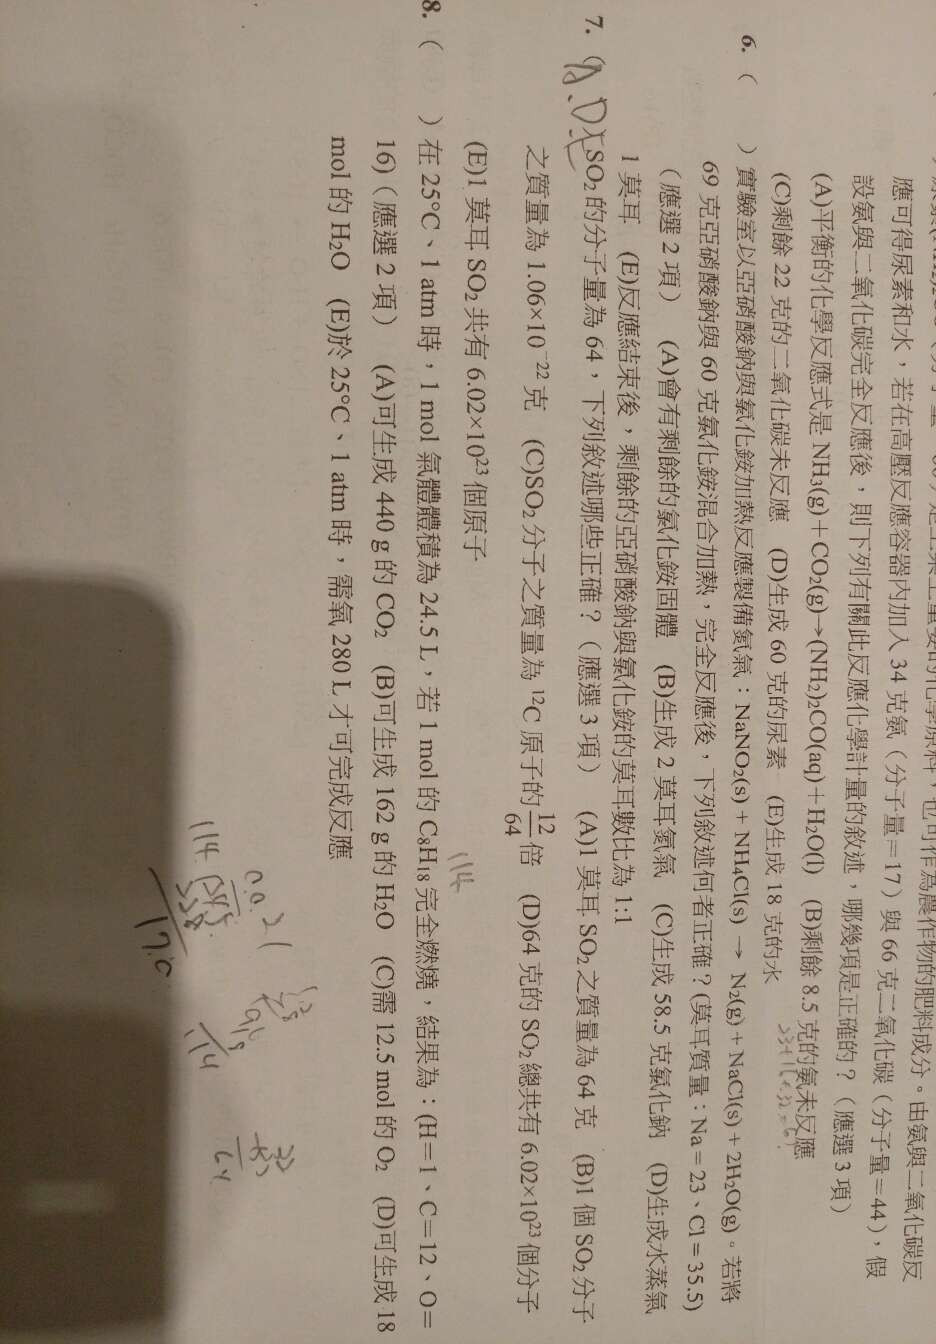 應可得尿素和水，若在高壓反應容器內加入 34 克氨（分子量＝17）與 66 克二氧化碳（分子量＝44），假
設氨與二氧化碳完全反應後，則下列有關此反應化學計量的敘述，哪幾項是正確的？（應選 3 項）
(A)平衡的化學反應式是 NH₃(g)＋CO₂(g)→(NH₂)₂CO(aq)＋H₂O(l) (B)剩餘 8.5 克的氨未反應
(C)剩餘 22 克的二氧化碳未反應 (D)生成 60 克的尿素 (E)生成 18 克的水
6. ( ) 實驗室以亞硝酸鈉與氯化銨加熱反應製備氮氣：NaNO₂(s) + NH₄Cl(s) → N₂(g) + NaCl(s) + 2H₂O(g)。若將
69 克亞硝酸鈉與 60 克氯化銨混合加熱，完全反應後，下列敘述何者正確？(莫耳質量：Na = 23、Cl = 35.5)
（應選 2 項） (A)會有剩餘的氯化銨固體 (B)生成 2 莫耳氮氣 (C)生成 58.5 克氯化鈉 (D)生成水蒸氣
1 莫耳 (E)反應結束後，剩餘的亞硝酸鈉與氯化銨的莫耳數比為 1:1
7. ( ) SO₂ 的分子量為 64，下列敘述哪些正確？（應選 3 項） (A)1 莫耳 SO₂ 之質量為 64 克 (B)1 個 SO₂ 分子
之質量為 1.06×10⁻²² 克 (C)SO₂ 分子之質量為 ¹²C 原子的 12/64 倍 (D)64 克的 SO₂ 總共有 6.02×10²³ 個分子
(E)1 莫耳 SO₂ 共有 6.02×10²³ 個原子
114
8. ( ) 在 25°C、1 atm 時，1 mol 氣體體積為 24.5 L，若 1 mol 的 C₈H₁₈ 完全燃燒，結果為：(H＝1、C＝12、O＝
16)（應選 2 項） (A)可生成 440 g 的 CO₂ (B)可生成 162 g 的 H₂O (C)需 12.5 mol 的 O₂ (D)可生成 18
mol 的 H₂O (E)於 25°C、1 atm 時，需氧 280 L 才可完成反應